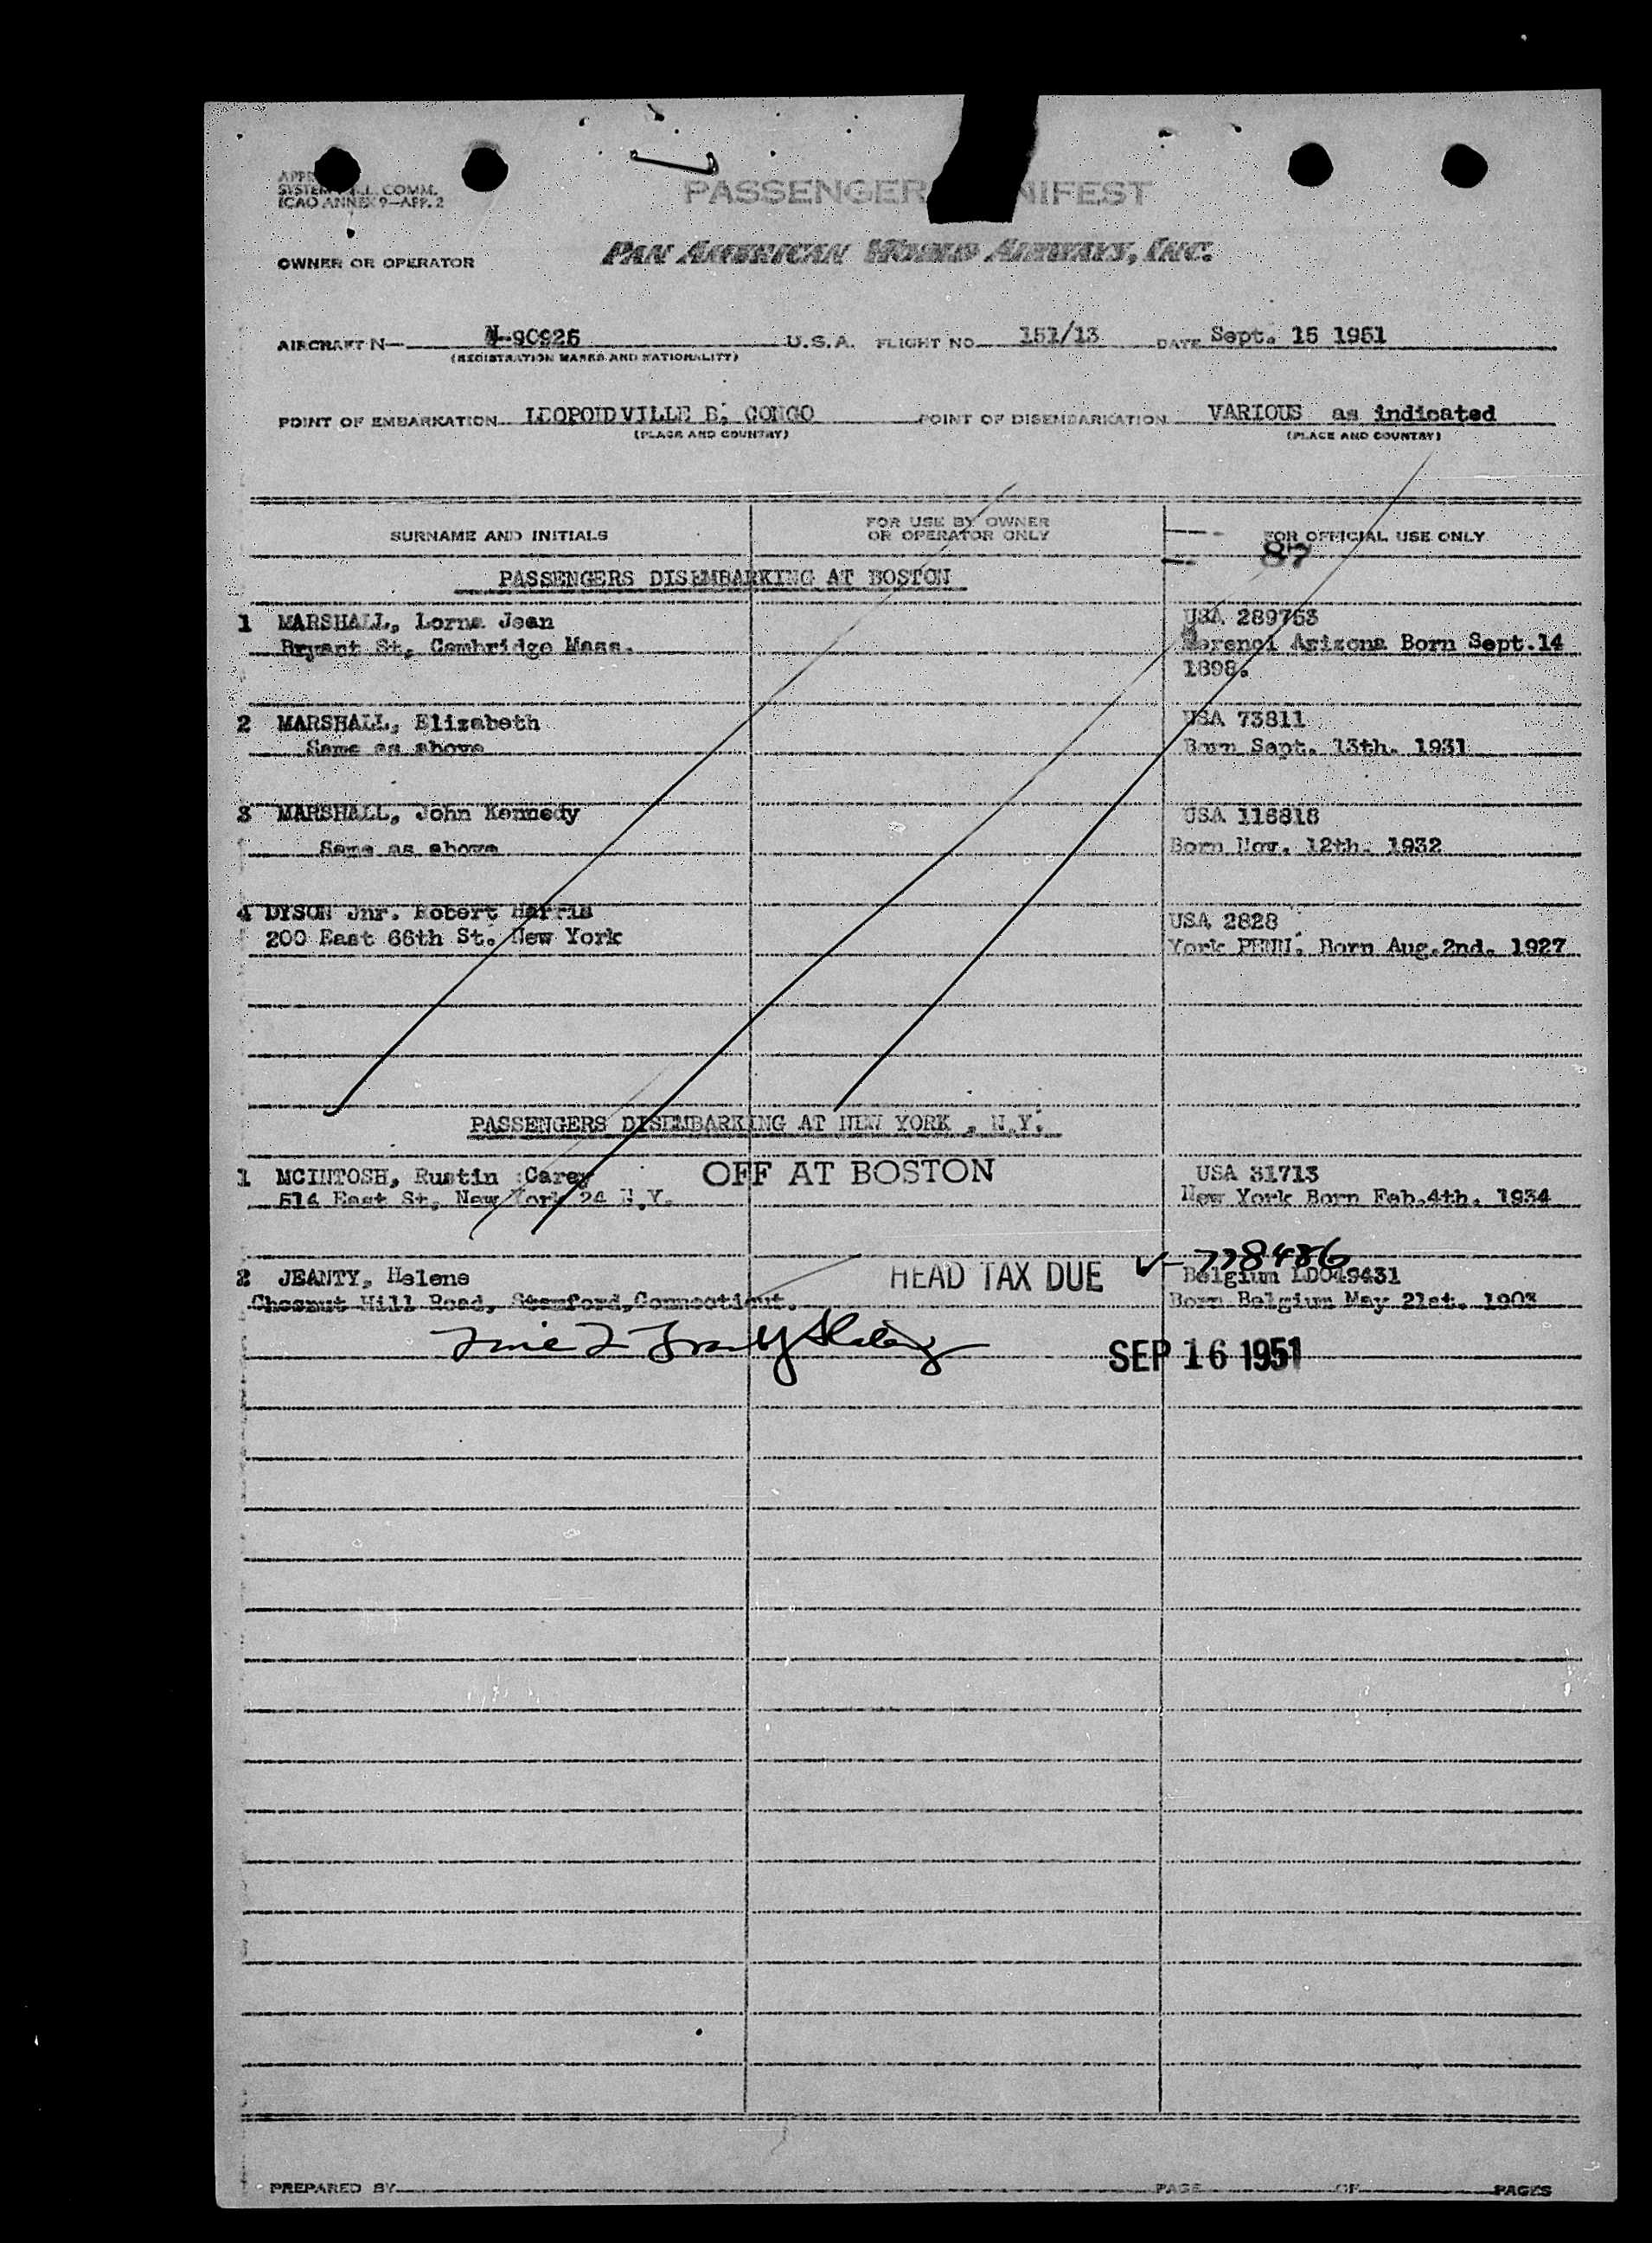 SYSTEM COMM.
ICAO ANNEX 9—APP. 2
PASSENGER MANIFEST
OWNER OR OPERATOR PAN AMERICAN WORLD AIRWAYS, INC.
AIRCRAFT N— N-90925 U.S.A. FLIGHT NO. 151/13 DATE Sept. 15 1951
(REGISTRATION MARKS AND NATIONALITY)
POINT OF EMBARKATION LEOPOLDVILLE B. CONGO POINT OF DISEMBARKATION VARIOUS as indicated
(PLACE AND COUNTRY) (PLACE AND COUNTRY)
SURNAME AND INITIALS FOR USE BY OWNER OR OPERATOR ONLY FOR OFFICIAL USE ONLY
87
PASSENGERS DISEMBARKING AT BOSTON
1 MARSHALL, Lorna Jean USA 289763
Bryant St, Cambridge Mass. Morenci Arizona Born Sept.14
1898.
2 MARSHALL, Elizabeth USA 73811
Same as above Born Sept. 13th. 1931
3 MARSHALL, John Kennedy USA 118818
Same as above Born Nov. 12th. 1932
4 DYSON Jnr. Robert Harris USA 2828
200 East 66th St. New York York PENN. Born Aug.2nd. 1927
PASSENGERS DISEMBARKING AT NEW YORK , N.Y.
1 MCINTOSH, Rustin Carey OFF AT BOSTON USA 31713
514 East St, New York 24 N.Y. New York Born Feb.4th. 1934
778486
2 JEANTY, Helene HEAD TAX DUE Belgium LDO49431
Chesnut Hill Road, Stamford,Connecticut. Born Belgium May 21st. 1903
SEP 16 1951
PREPARED BY PAGE OF PAGES